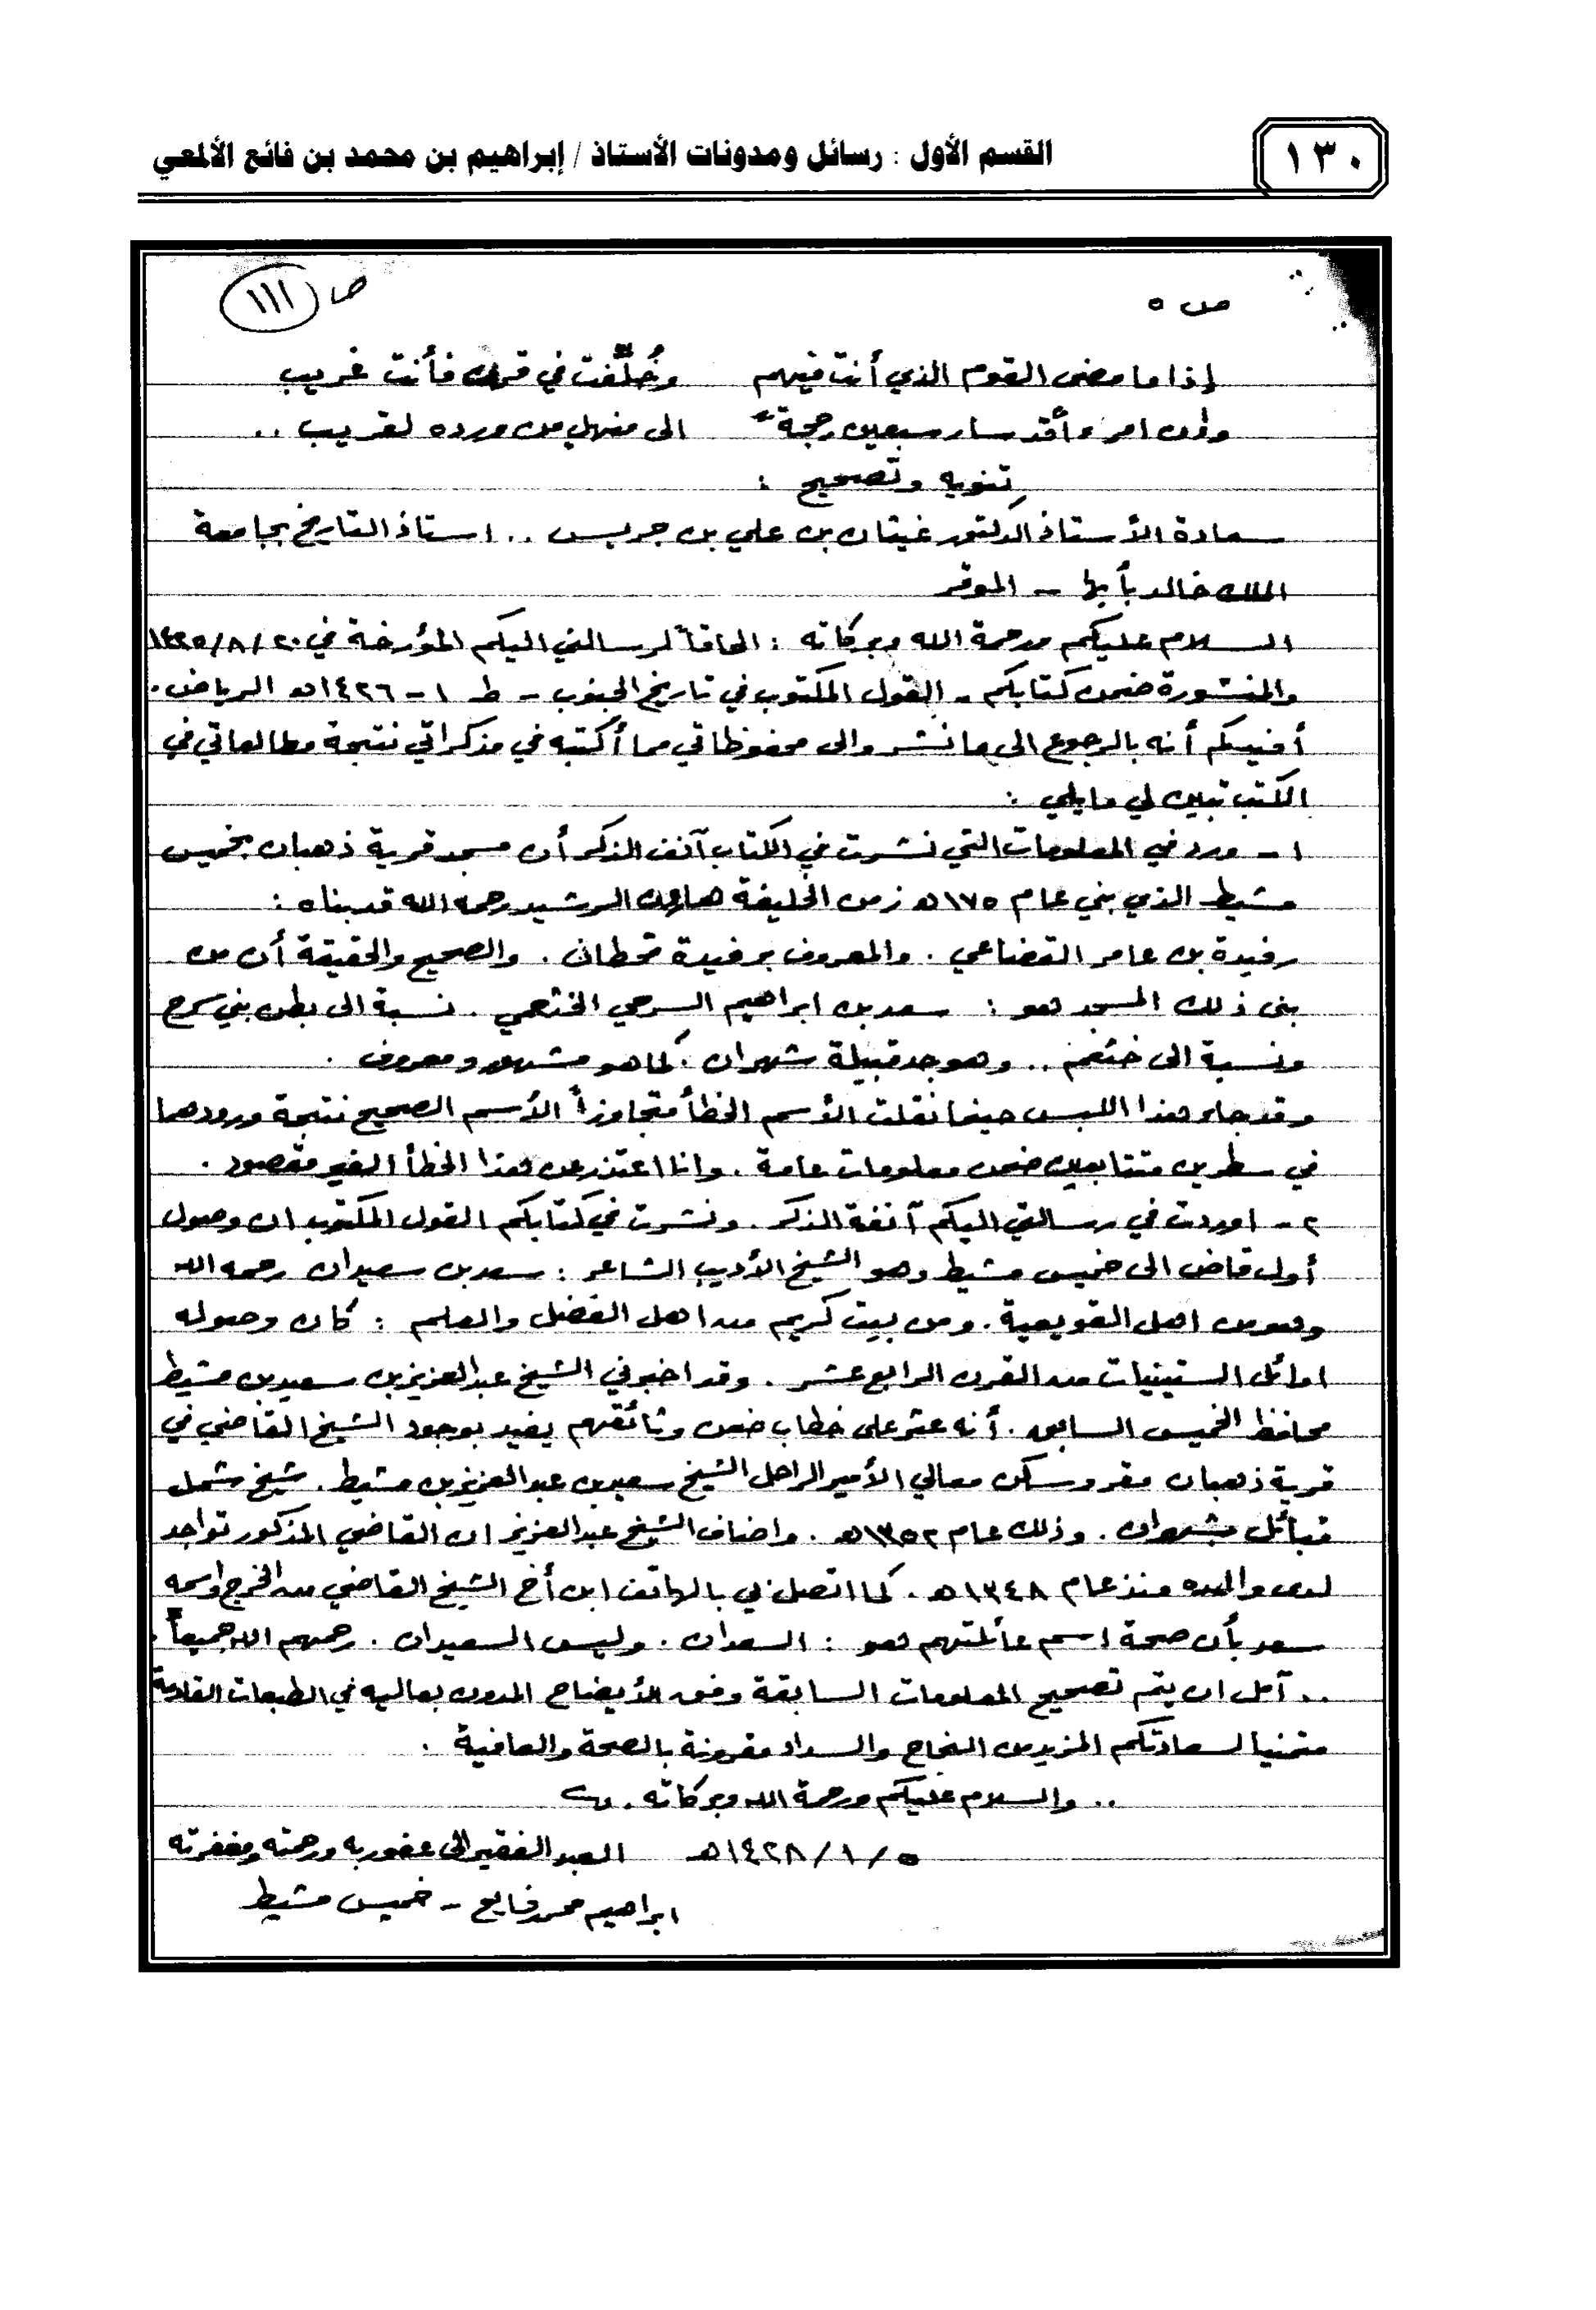 القسم الأول : رسائل ومدونات الأستاذ / إبراهيم بن محمد بن فائع الألمعي
١٣٠
ص ٥
ص (١١١)
إذا ما مضى القوم الذي أنت فيهم وخُلِّفت في قرن فأنت غريب
وإن امرءاً قد سار سبعين حجة الى منهل من ورده لقريب ..
تنويه وتصحيح :
سعادة الأستاذ الدكتور غيثان بن علي بن جريس .. استاذ التاريخ بجامعة
الملك خالد بأبها - الموقر
السلام عليكم ورحمة الله وبركاته : الحاقاً لرسالتي اليكم المؤرخة في ٢٠/٨/١٤٢٥
والمنشورة ضمن كتابكم - القول المكتوب في تاريخ الجنوب - ط ١ - ١٤٢٦هـ الرياض .
أفيدكم أنه بالرجوع الى ما نشر والى محفوظاتي مما أكتبه في مذكراتي نتيجة مطالعاتي في
الكتب تبين لي مايلي :
١ - ورد في المعلومات التي نشرت في الكتاب آنف الذكر أن مسجد قرية ذهبان بخميس
مشيط الذي بني عام ١٧٥هـ زمن الخليفة هارون الرشيد رحمه الله قد بناه :
رفيدة بن عامر القضاعي . والمعروف برفيدة قحطان . والصحيح والحقيقة أن من
بنى ذلك المسجد هو : سعد بن ابراهيم السرحي الخثعمي . نسبة الى بطن بني سرح
ونسبة الى خثعم .. وهو جد قبيلة شهران . كما هو مشهور ومعروف .
وقد جاء هذا اللبس حينما نقلت الأسم الخطأ متجاوزاً الأسم الصحيح نتيجة ورودهما
في سطرين متتابعين ضمن معلومات عامة . وانا اعتذر عن هذا الخطأ الغير مقصود .
٢ - اوردت في رسالتي اليكم آنفة الذكر . ونشرت في كتابكم القول المكتوب ان وصول
أول قاض الى خميس مشيط وهو الشيخ الأديب الشاعر : سعد بن سعيدان رحمه الله
وهو من اهل القويعية . ومن بيت كريم من اهل الفضل والعلم : كان وصوله
اوائل الستينيات من القرن الرابع عشر . وقد اخبرني الشيخ عبدالعزيز بن سعيد بن مشيط
محافظ الخميس السابق . أنه عثر على خطاب ضمن وثائقهم يفيد بوجود الشيخ القاضي في
قرية ذهبان مقر وسكن معالي الأمير الراحل الشيخ سعيد بن عبدالعزيز بن مشيط . شيخ شمل
قبائل شهران . وذلك عام ١٣٥٢هـ . واضاف الشيخ عبدالعزيز ان القاضي المذكور تواجد
لدى والده منذ عام ١٣٤٨هـ . كما اتصل بي بالهاتف ابن أخ الشيخ القاضي من الخرج واسمه
سعد بأن صحة اسم عائلتهم هو : السعدان . وليس السعيدان . رحمهم الله جميعاً .
.. آمل ان يتم تصحيح المعلومات السابقة وفق الأيضاح المدون بعاليه في الطبعات القادمة
متمنيا لسعادتكم المزيد من النجاح والسداد مقرونة بالصحة والعافية .
.. والسلام عليكم ورحمة الله وبركاته .
٥/١/١٤٢٨هـ العبد الفقير الى عفو ربه ورحمته ومغفرته
ابراهيم محمد فايع - خميس مشيط